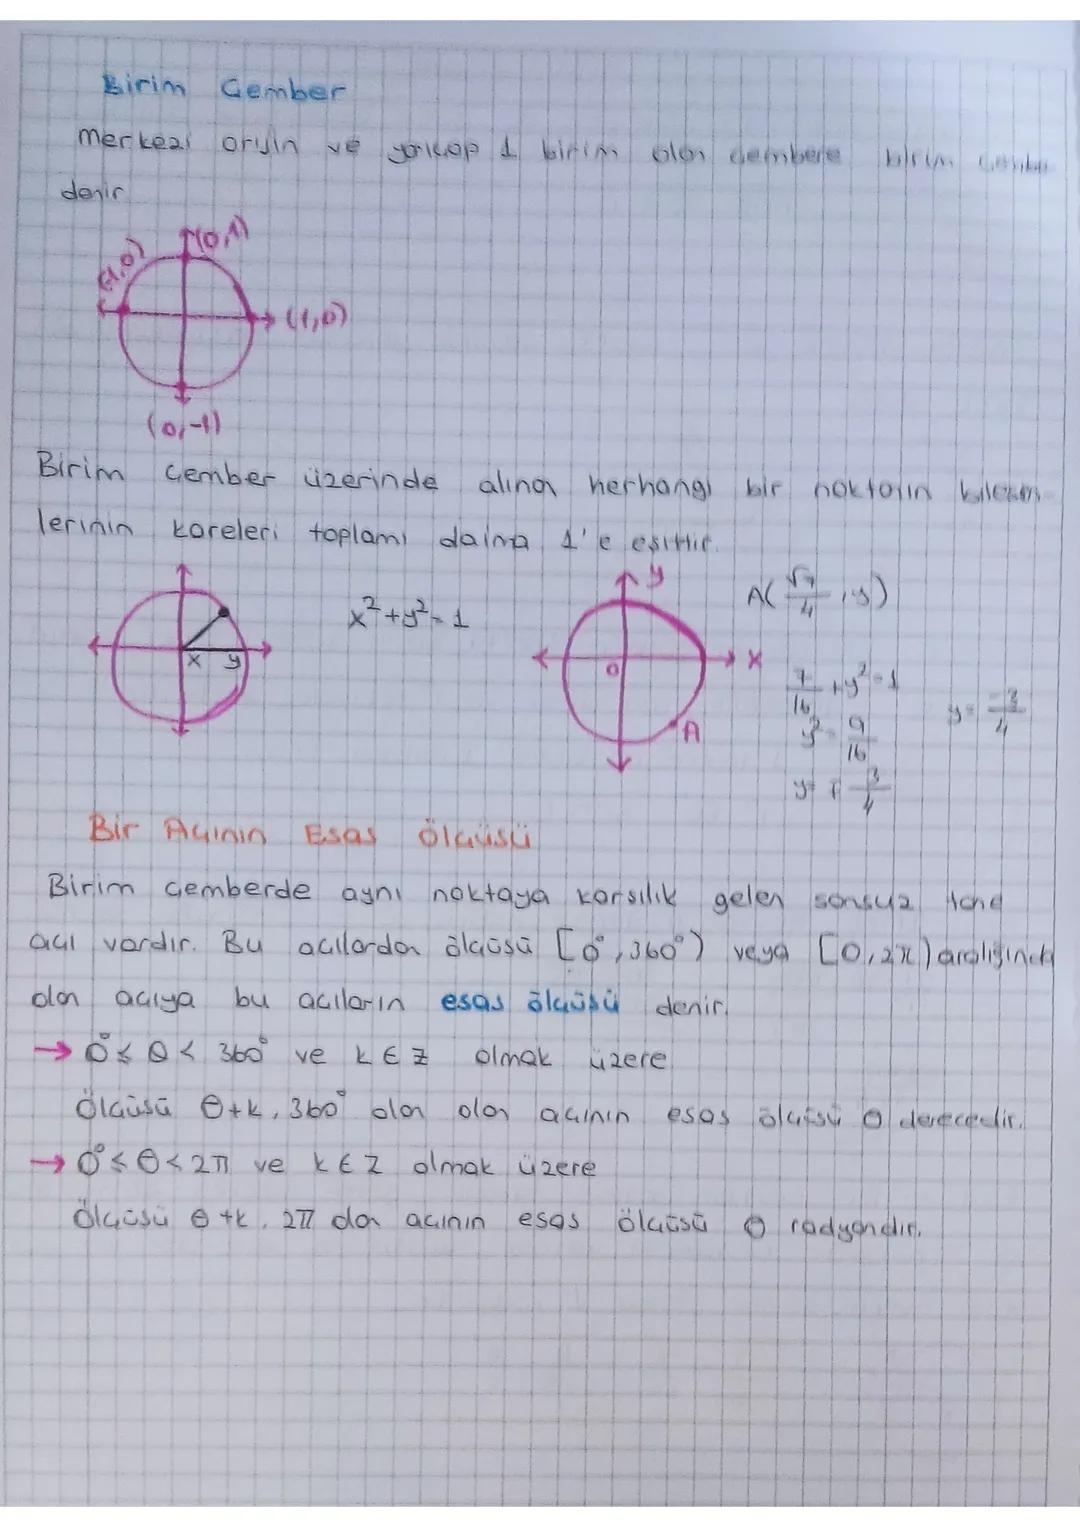 Birim Çember
merkezi orijin ve yarıçap 1 birim olan çembere birim çember
denir
(0,1)
(-1,0)
(1,0)
(0,-1)
Birim çember üzerinde alınan herhangi bir noktanın bileşen
lerinin kareleri toplamı daima 1'e eşittir.
x y
x²+y²=1
y
x
0
A
A(√7/4, y)
7/16 + y² = 1
y² = 9/16
y = ∓ 3/4
y = -3/4
Bir Açının Esas Ölçüsü
Birim çemberde aynı noktaya karşılık gelen sonsuz tane
açı vardır. Bu açılardan ölçüsü [0°, 360°) veya [0, 2π) aralığında
olan açıya bu açıların esas ölçüsü denir.
→ 0° ≤ θ < 360° ve k ∈ Z olmak üzere
Ölçüsü θ+k. 360° olan olan açının esas ölçüsü θ derecedir.
→ 0° ≤ θ < 2π ve k ∈ Z olmak üzere
Ölçüsü θ+k. 2π olan açının esas ölçüsü θ radyandır.